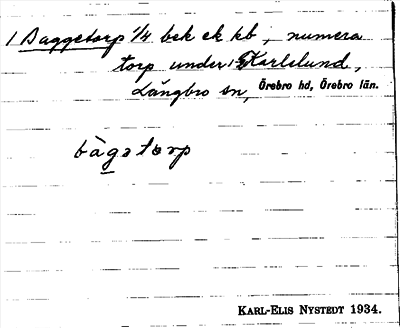 1 Baggetorp 1/4 bek ek kb, numera
torp under Karlslund,
Längbro sn, Örebro hd, Örebro län.
bàgatorp
KARL-ELIS NYSTEDT 1934.